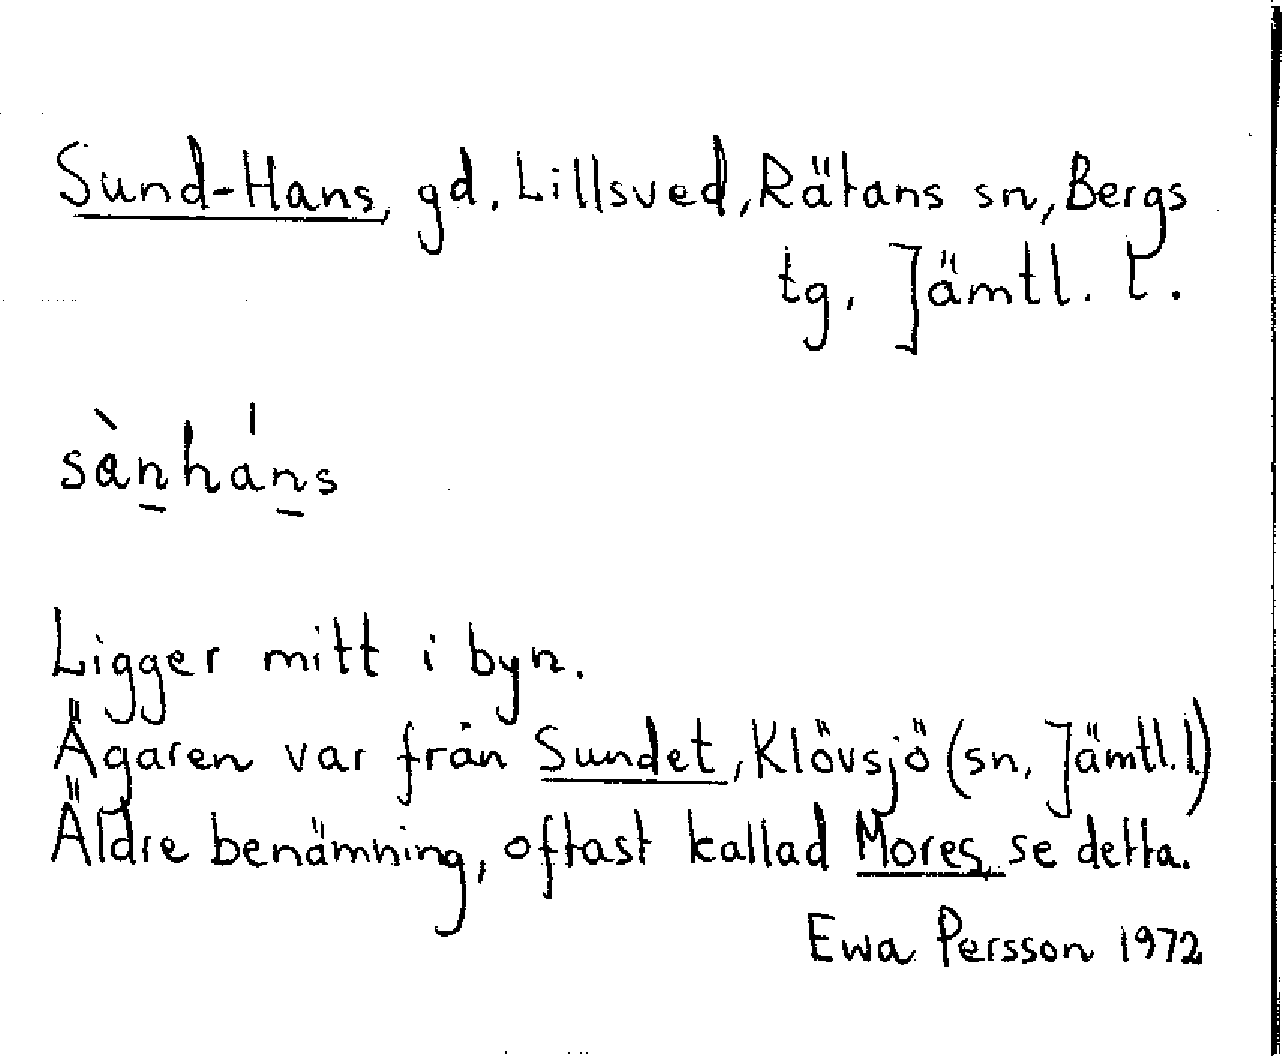 Sund-Hans, gd. Lillsved, Rätans sn, Bergs
tg. Jämtl. l.
sa̍̀n̲há̍n̲s
Ligger mitt i byn.
Ägaren var från Sundet, Klövsjö (sn, Jämtl. l.)
Äldre benämning, oftast kallad Mores, se detta.
Ewa Persson 1972